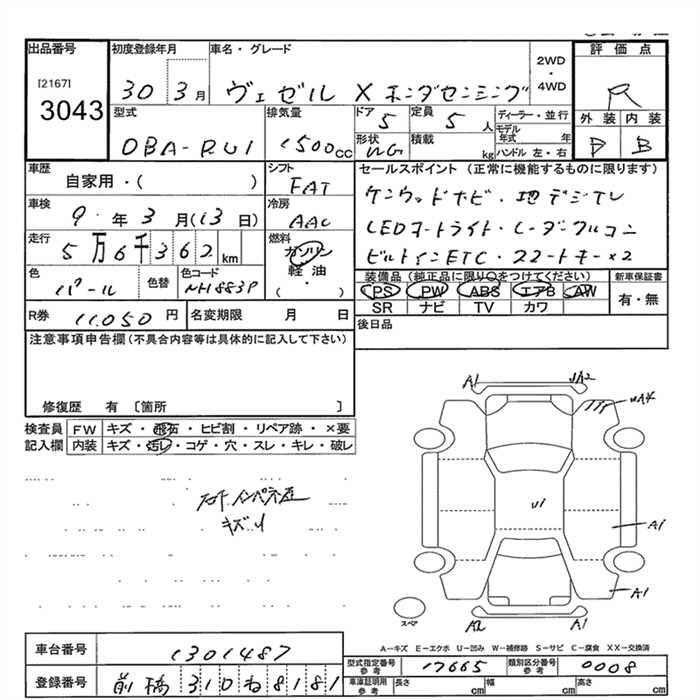 出品番号 初度登録年月 車名・グレード 評価点
[2167] 2WD・4WD
3043 30 3月 ヴェゼル X ホンダセンシング R
型式 排気量 ドア 定員 ディーラー・並行 外装 内装
DBA-RU1 1500cc 5 5人 モデル年式 年 D B
形状 積載 kg ハンドル 左・右
WG
車歴 シフト セールスポイント (正常に機能するものに限ります)
自家用・( ) FAT ケンウッドナビ・地デジTV
車検 冷房
9年3月(13日) AAC LEDオートライト・レーダークルコン
走行 燃料
5万6千362km ガソリン ビルトインETC・スマートキー×2
軽油
・
( )
色 色替 色コード 装備品 (純正品に限り○をつけてください) 新車保証書
パール NH883P PS PW ABS エアB AW 有・無
SR ナビ TV カワ
R券 11,050円 名変期限 月 日 後日品
注意事項申告欄 (不具合内容等は具体的に記入して下さい)
修復歴 有 〔箇所 〕
検査員 FW キズ・飛石・ヒビ割・リペア跡・×要
記入欄 内装 キズ・汚レ・コゲ・穴・スレ・キレ・破レ
A1 UA2
UA4
キズ U1
A1
A1
スペア
A2 A1
A-キズ E-エクボ U-凹み W-補修跡 S-サビ C-腐食 XX-交換済
車台番号 1301487
型式指定番号 参考 17665 類別区分番号 参考 0008
登録番号 前橋 310 ね 8181
車庫証明用 参考 長さ cm 幅 cm 高さ cm